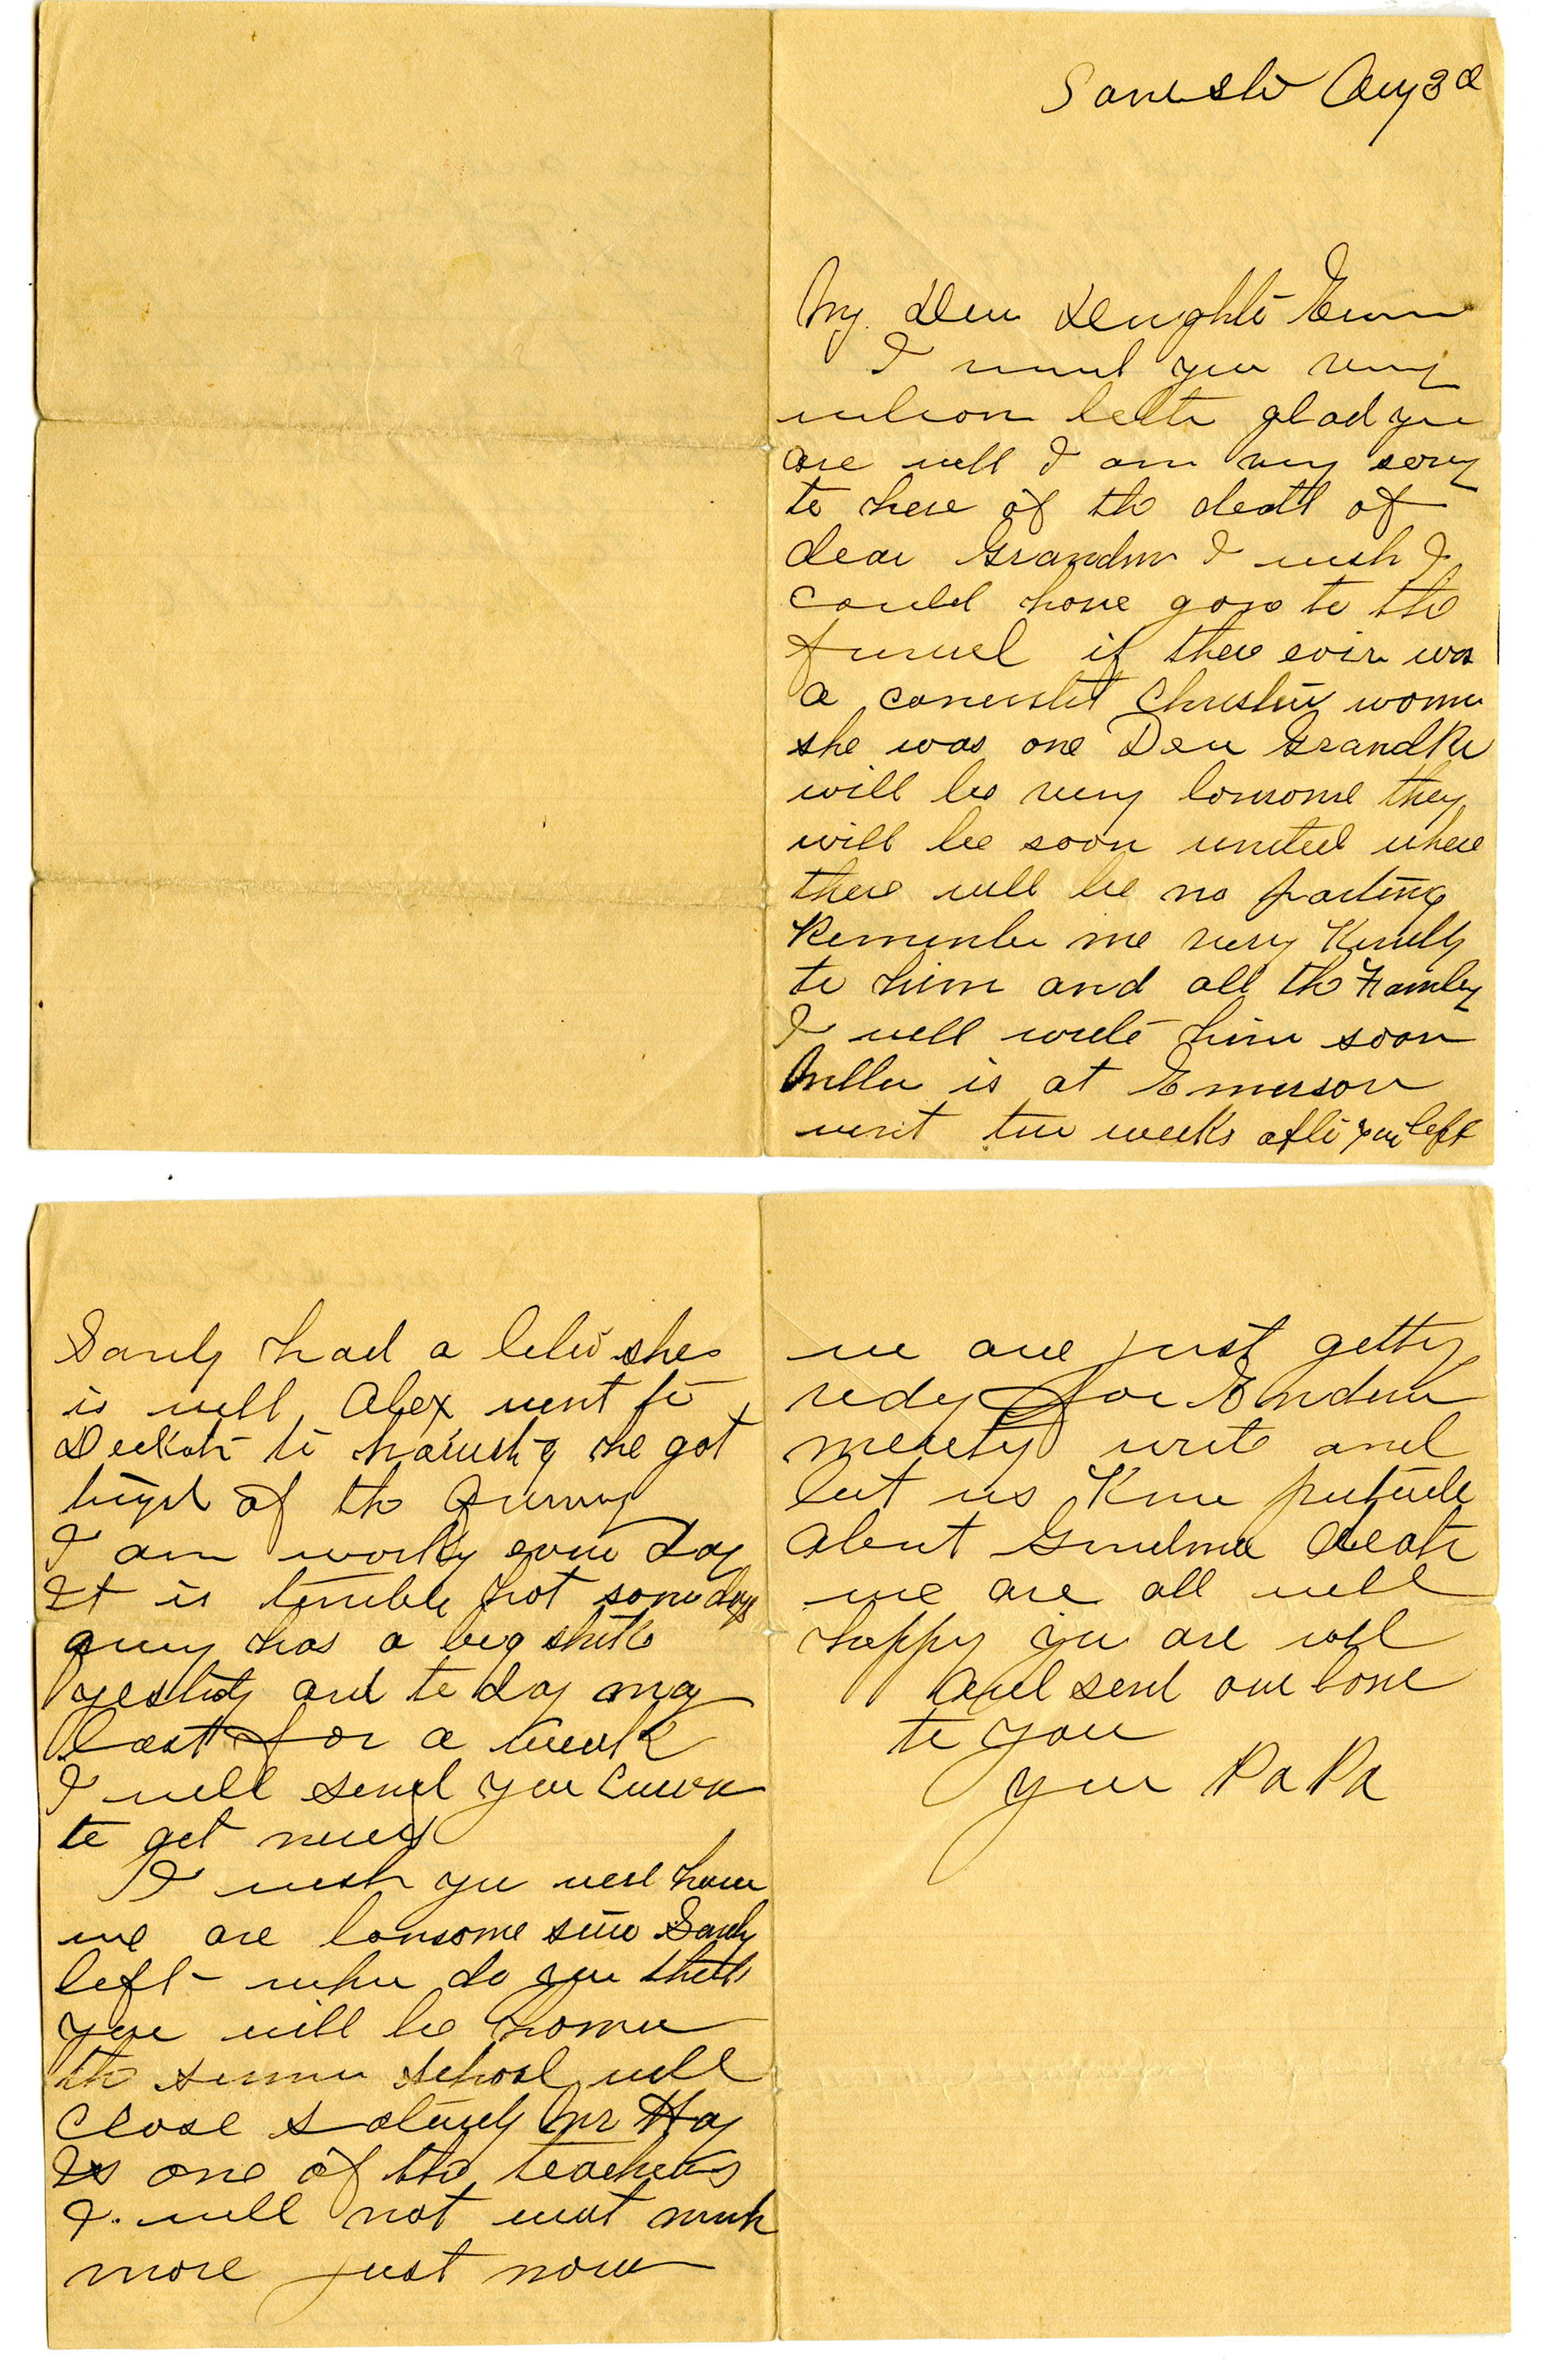 Aug 3d
My Dear Daughter
I you very
welcom letter glad you
are well I am very sory
to here of the death of
dear Grandm I wish I
could have gon to the
funuel if there ever was
a Christin womn
she was one Dear GrandPa
will be very lonsome they
will be soon united where
there will be no parting
Remember me very Kindly
to him and all the Famley
I will write him soon
is at Emerson
went two weeks after you left
Sandy had a letter she
is well Alex went to
to he got
of the
I am working every day
It is terrible hot som days
has a big
yesterdy and to day may
last for a week
I will send you
to get
I wish you were home
we are lonsome sinc Sandy
left - when do you think
you will be home
the summer school will
close Saturdy Mr Hay
Is one of the teachers
I will not writ much
more just now
we are just getting
redy for
meeting write and
let us Know
about Grandma death
we are all well
happy you are well
and send our love
to you
your PaPa